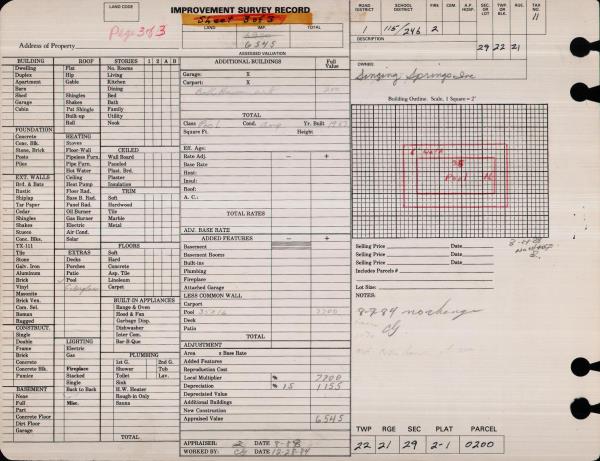 LAND CODE
IMPROVEMENT SURVEY RECORD
Sheet 3 of 3
Page 3 of 3
LAND IMP. TOTAL
6545
ASSESSED VALUATION
Address of Property
ROAD DISTRICT SCHOOL DISTRICT FIRE COM. A.P. HOSP. SEC. OR LOT TWP OR BLK. RGE. TAX NO.
1 115/246 2 11
DESCRIPTION
29 22 21
Singing Springs Inc
BUILDING ROOF STORIES 1 2 A B
Dwelling Flat No. Rooms
Duplex Hip Living
Apartment Gable Kitchen
Barn Dining
Shed Shingles Bed
Garage Shakes Bath
Cabin Pat Shingle Family
Built-up Utility
Roll Nook
FOUNDATION
Concrete HEATING
Conc. Blk. Stoves CEILED
Stone, Brick Floor-Wall Wall Board
Posts Pipeless Furn. Paneled
Piles Pipe Furn. Plast. Brd.
Hot Water Ceiling
EXT. WALLS Heat Pump Plaster
Brd. & Bats Insulation
Rustic Floor Rad. TRIM
Shiplap Base B. Rad. Soft
Tar Paper Panel Rad. Hardwood
Cedar Oil Burner Tile
Shingles Gas Burner Marble
Shakes Electric Metal
Stucco Air Cond.
Conc. Blks. Solar FLOORS
TX-111 EXTRAS Soft
Tile Decks Hard
Stone Porches Concrete
Galv. Iron Patio Asp. Tile
Aluminum Pool Linoleum
Brick Carpet
Vinyl Fireplace
Masonite
Brick Ven. BUILT-IN APPLIANCES
Com. Sel. Range & Oven
Roman Hood & Fan
Rugged Garbage Disp.
CONSTRUCT. Dishwasher
Single Inter Com.
Double LIGHTING Bar-B-Que
Frame Electric
Brick Gas PLUMBING
Concrete 1st G. 2nd G.
Concrete Blk. Fireplace Shower Tub
Pumice Stacked Toilet Lav.
Single Sink
BASEMENT Back to Back H.W. Heater
None Rough-in Only
Full Misc. Sauna
Part
Concrete Floor
Dirt Floor
Garage
TOTAL
ADDITIONAL BUILDINGS Full Value
Garage: X
Carport: X
TOTAL
Class Pool Cond. avg Yr. Built
Square Ft. Height
Eff. Age:
Rate Adj. - +
Base Rate
Heat:
Insul:
Roof:
A. C.:
TOTAL RATES
ADJ. BASE RATE
ADDED FEATURES - +
Basement
Basement Rooms
Built-ins
Plumbing
Fireplace
Attached Garage
LESS COMMON WALL
Carport
Pool 35x16 7700
Deck
Patio
TOTAL
ADJUSTMENT
Area x Base Rate
Added Features
Reproduction Cost
Local Multiplier % 7700
Depreciation % 15 1155
Depreciated Value
Additional Buildings
New Construction
Appraised Value 6545
APPRAISER: 2 DATE 8-84
WORKED BY: CG DATE 12-28-84
Building Outline. Scale, 1 Square = 2'
35
Pool 16
Selling Price Date
Selling Price Date
Selling Price Date
Includes Parcels #
Lot Size:
NOTES:
8-7-84 no change
CG
TWP RGE SEC PLAT PARCEL
22 21 29 2-1 0200